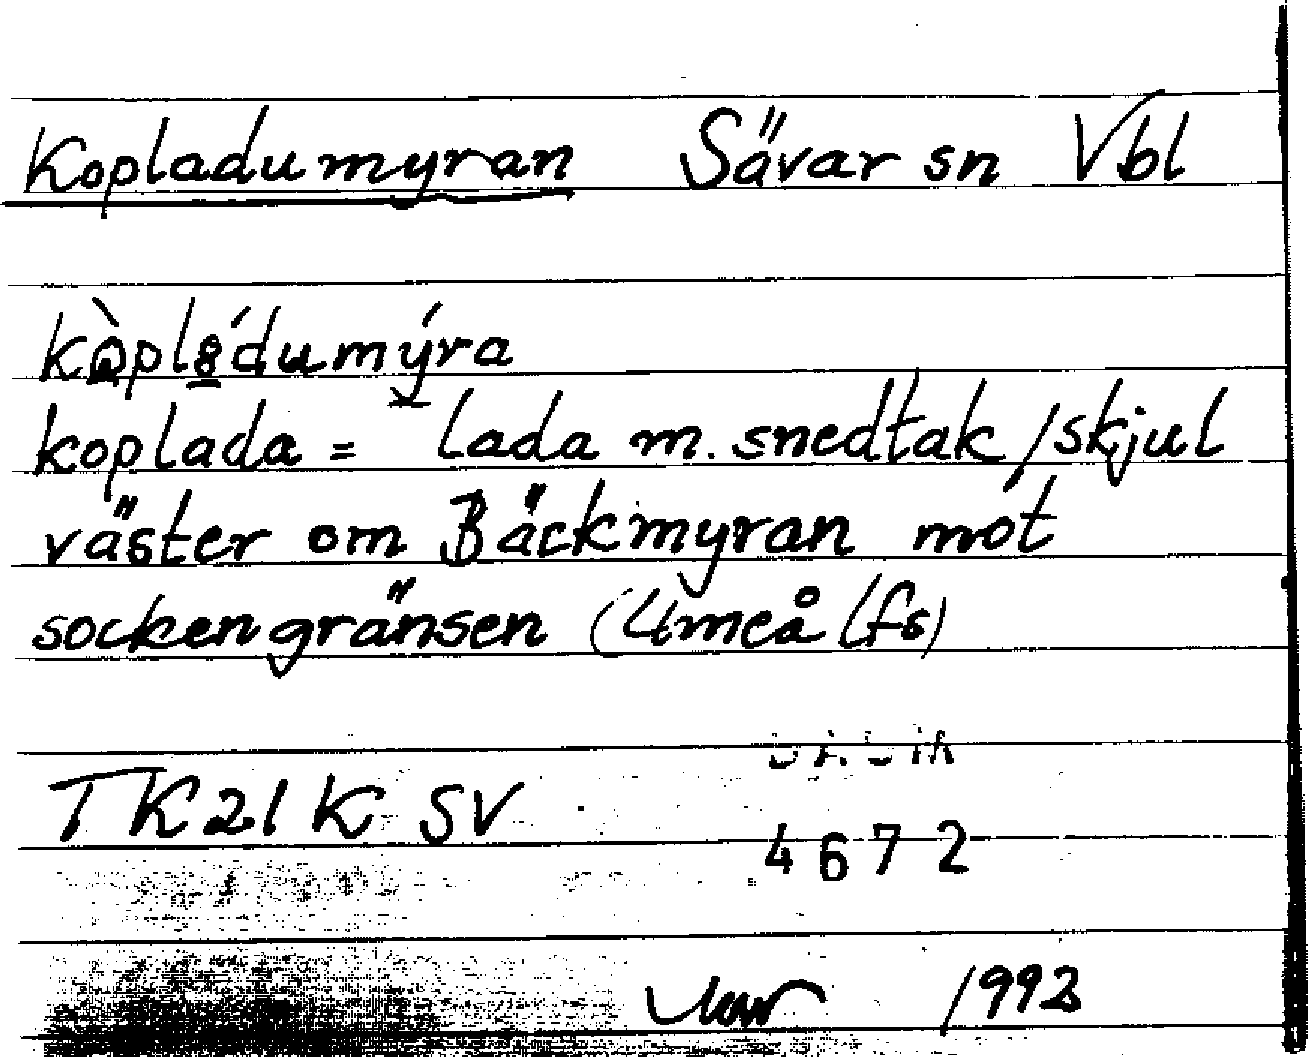 Kopladumyran Sävar sn Vbl
koplada = lada m. snedtak/skjul
väster om Bäckmyran mot
sockengränsen (Umeå lfs)
TK21K SV
4672
1992